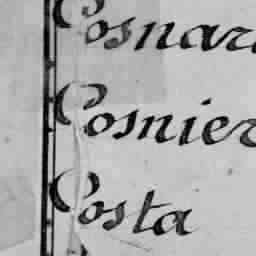 Cosnar
Cosnier
Costa